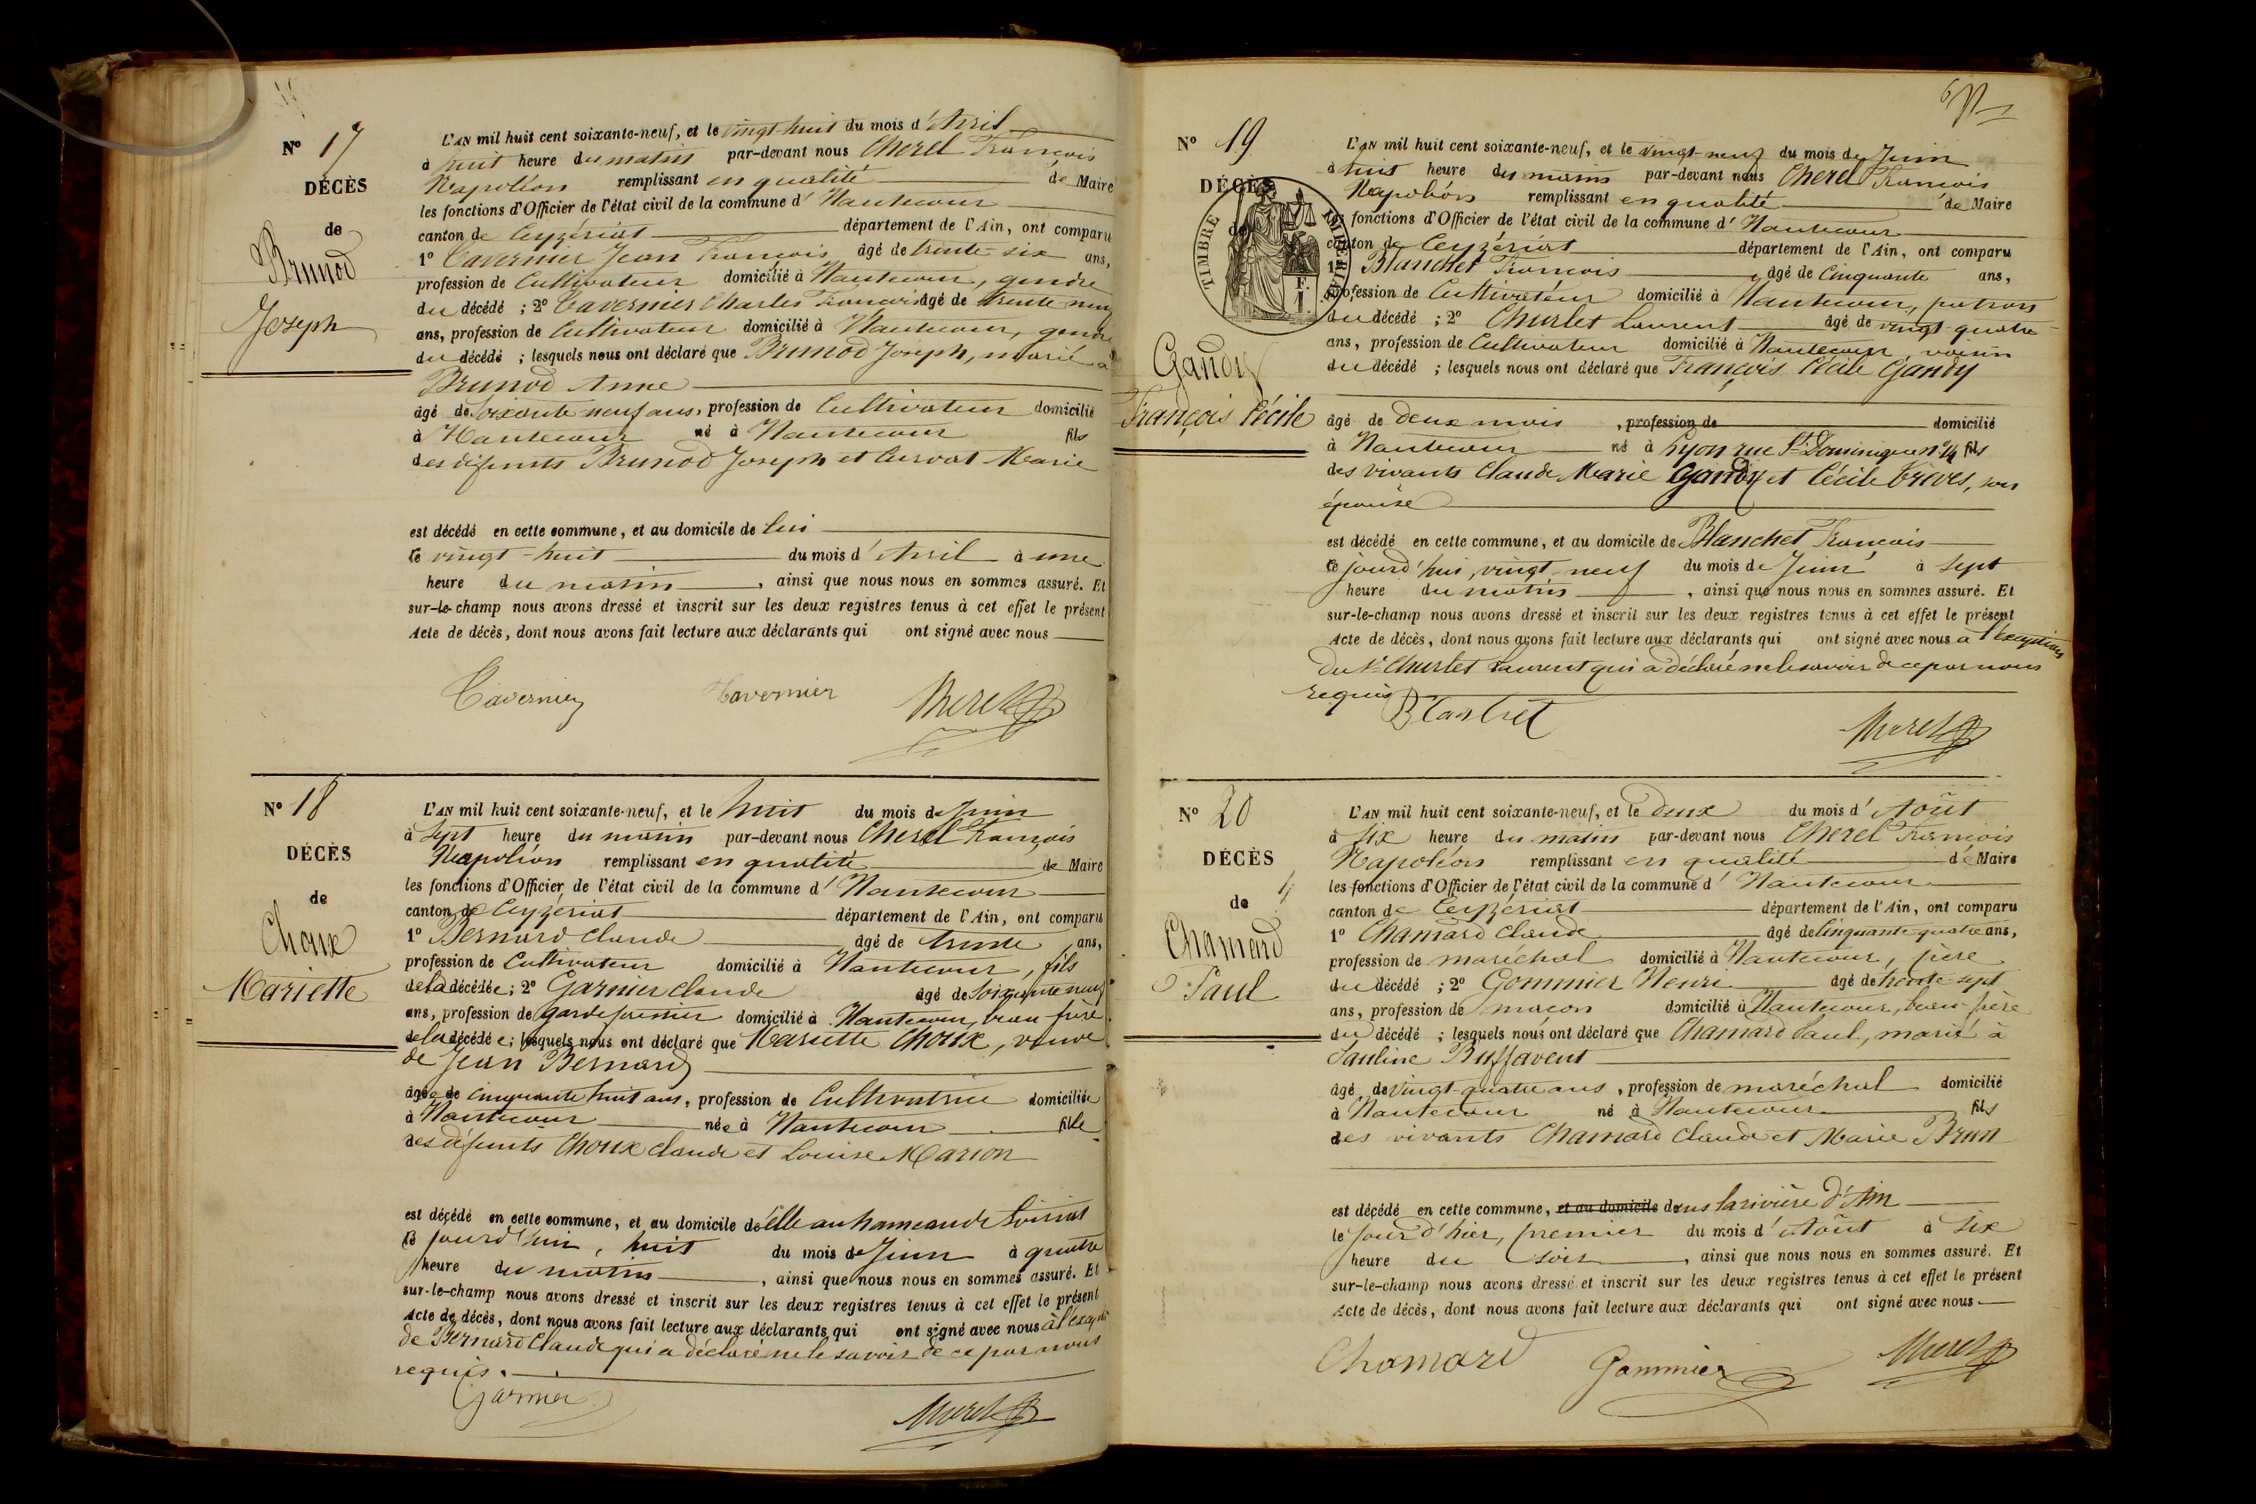 N° 17
DÉCÈS
de
Brunod
Joseph
L'AN mil huit cent soixante-neuf, et le vingt-huit du mois d'Avril
à huit heure du matin par-devant nous Cherel François
Napoléon remplissant en qualité de Maire
les fonctions d'Officier de l'état civil de la commune d'Hautecour
canton de Ceyzériat département de l'Ain, ont comparu
1° Tavernier Jean François âgé de trente-six ans,
profession de Cultivateur domicilié à Hautecour, gendre
du décédé ; 2° Tavernier Charles François âgé de trente neuf
ans, profession de Cultivateur domicilié à Hautecour, gendre
du décédé ; lesquels nous ont déclaré que Brunod Joseph, marié à
Brunod Anne
âgé de soixante neuf ans, profession de Cultivateur domicilié
à Hautecour né à Hautecour fils
des défunts Brunod Joseph et Curvat Marie
est décédé en cette commune, et au domicile de lui
le vingt-huit du mois d'Avril à une
heure du matin, ainsi que nous nous en sommes assuré. Et
sur-le-champ nous avons dressé et inscrit sur les deux registres tenus à cet effet le présent
Acte de décès, dont nous avons fait lecture aux déclarants qui ont signé avec nous
Tavernier Tavernier Cherel
N° 18
DÉCÈS
de
Choux
Mariette
L'AN mil huit cent soixante-neuf, et le huit du mois de Juin
à sept heure du matin par-devant nous Cherel François
Napoléon remplissant en qualité de Maire
les fonctions d'Officier de l'état civil de la commune d'Hautecour
canton de Ceyzériat département de l'Ain, ont comparu
1° Bernard Claude âgé de trente ans,
profession de Cultivateur domicilié à Hautecour, fils
de la décédée ; 2° Garnier Claude âgé de soixante neuf
ans, profession de garde forestier domicilié à Hautecour, beau-frère
de la décédée ; lesquels nous ont déclaré que Mariette Choux, veuve
de Jean Bernard
âgée de cinquante huit ans, profession de Cultivatrice domiciliée
à Hautecour née à Hautecour fille
des défunts Choux Claude et Louise Marion
est décédé en cette commune, et au domicile de elle au hameau de
le jourd'hui, huit du mois de Juin à quatre
heure du matin, ainsi que nous nous en sommes assuré. Et
sur-le-champ nous avons dressé et inscrit sur les deux registres tenus à cet effet le présent
Acte de décès, dont nous avons fait lecture aux déclarants qui ont signé avec nous à l'excepti
de Bernard Claude qui a déclaré ne le savoir de ce par nous
requis.
Garnier Cherel
N° 19
DÉCÈS
de
TIMBRE IMPÉRIAL
Gandy
François Cécile
L'AN mil huit cent soixante-neuf, et le vingt-neuf du mois de Juin
à huit heure du matin par-devant nous Cherel François
Napoléon remplissant en qualité de Maire
les fonctions d'Officier de l'état civil de la commune d'Hautecour
canton de Ceyzériat département de l'Ain, ont comparu
1° Blanchet François, âgé de Cinquante ans,
profession de Cultivateur domicilié à Hautecour, patron
du décédé ; 2° Churlet Laurent âgé de vingt-quatre
ans, profession de Cultivateur domicilié à Hautecour, voisin
du décédé ; lesquels nous ont déclaré que François Cécile Gandy
âgé de deux mois, profession de domicilié
à Hautecour né à Lyon rue St Dominique n° 14 fils
des vivants Claude Marie Gandy et Cécile Trèves, son
épouse
est décédé en cette commune, et au domicile de Blanchet François
le jourd'hui, vingt-neuf du mois de Juin à sept
heure du matin, ainsi que nous nous en sommes assuré. Et
sur-le-champ nous avons dressé et inscrit sur les deux registres tenus à cet effet le présent
Acte de décès, dont nous avons fait lecture aux déclarants qui ont signé avec nous à l'exception
du Sr Churlet Laurent qui a déclaré ne le savoir de ce par nous
requis
Blanchet Cherel
N° 20
DÉCÈS
de
Chamard
Paul
L'AN mil huit cent soixante-neuf, et le deux du mois d'Août
à six heure du matin par-devant nous Cherel François
Napoléon remplissant en qualité de Maire
les fonctions d'Officier de l'état civil de la commune d'Hautecour
canton de Ceyzériat département de l'Ain, ont comparu
1° Chamard Claude âgé de Cinquante quatre ans,
profession de maréchal domicilié à Hautecour, père
du décédé ; 2° Gommier Henri âgé de trente sept
ans, profession de maçon domicilié à Hautecour, beau-frère
du décédé ; lesquels nous ont déclaré que Chamard Paul, marié à
Pauline Buffavent
âgé de vingt-quatre ans, profession de maréchal domicilié
à Hautecour né à Hautecour fils
des vivants Chamard Claude et Marie Brun
est décédé en cette commune, et au domicile dans la rivière d'Ain
le jour d'hier, premier du mois d'Août à six
heure du soir, ainsi que nous nous en sommes assuré. Et
sur-le-champ nous avons dressé et inscrit sur les deux registres tenus à cet effet le présent
Acte de décès, dont nous avons fait lecture aux déclarants qui ont signé avec nous
Chamard Gommier Cherel